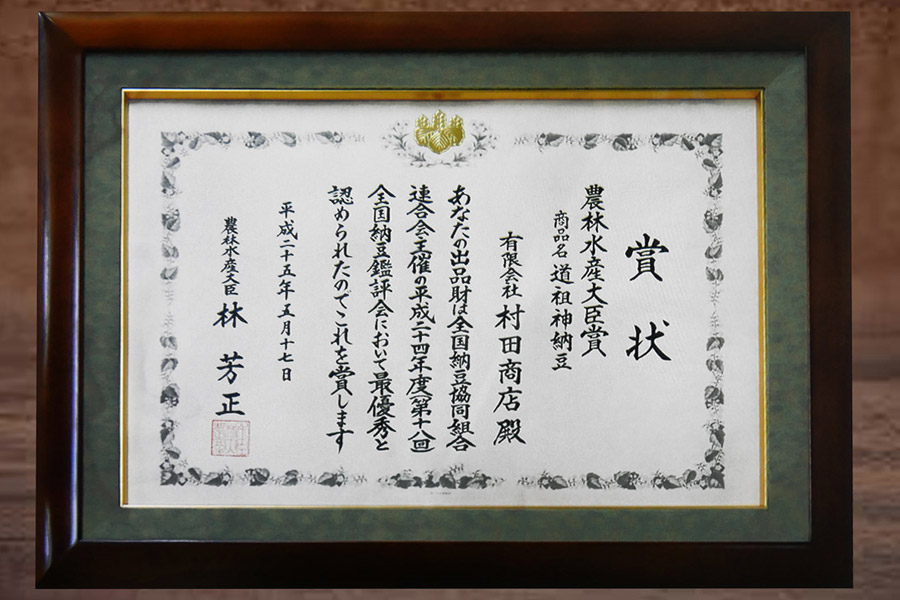 賞状
農林水産大臣賞
商品名 道祖神納豆
有限会社 村田商店 殿
あなたの出品財は全国納豆協同組合
連合会主催の平成二十四年度第十八回
全国納豆鑑評会において最優秀と
認められたのでこれを賞します
平成二十五年五月十七日
農林水産大臣 林 芳正